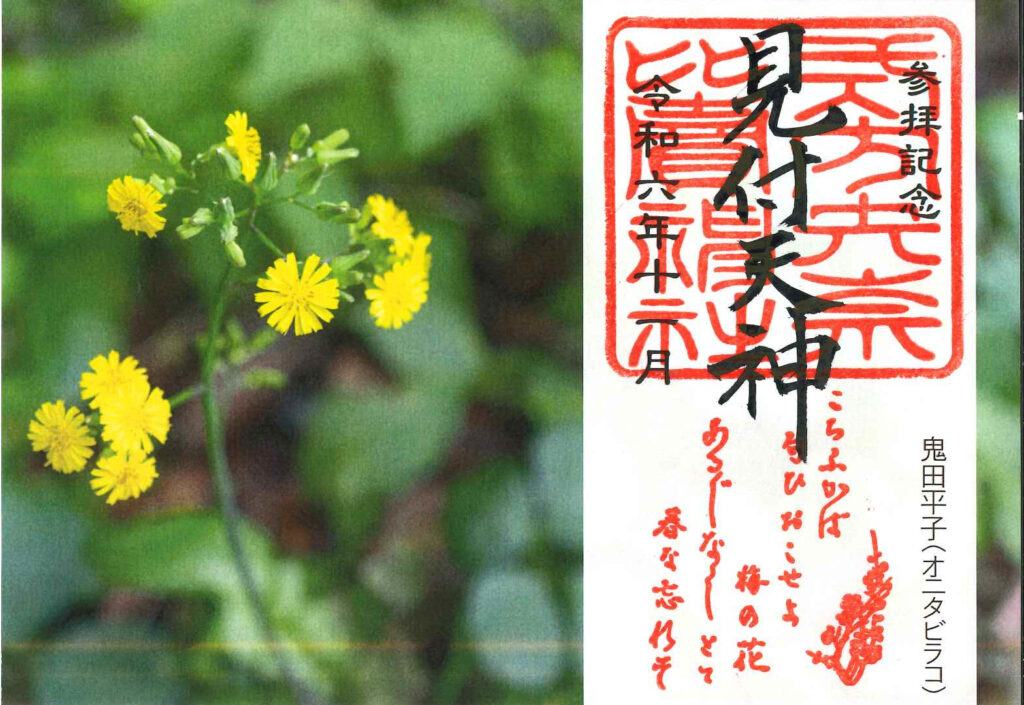 参拝記念
見付天神
令和六年十一月
鬼田平子（オニタビラコ）
こちふかば
匂ひおこせよ
梅の花
あるじなしとて
春な忘れそ